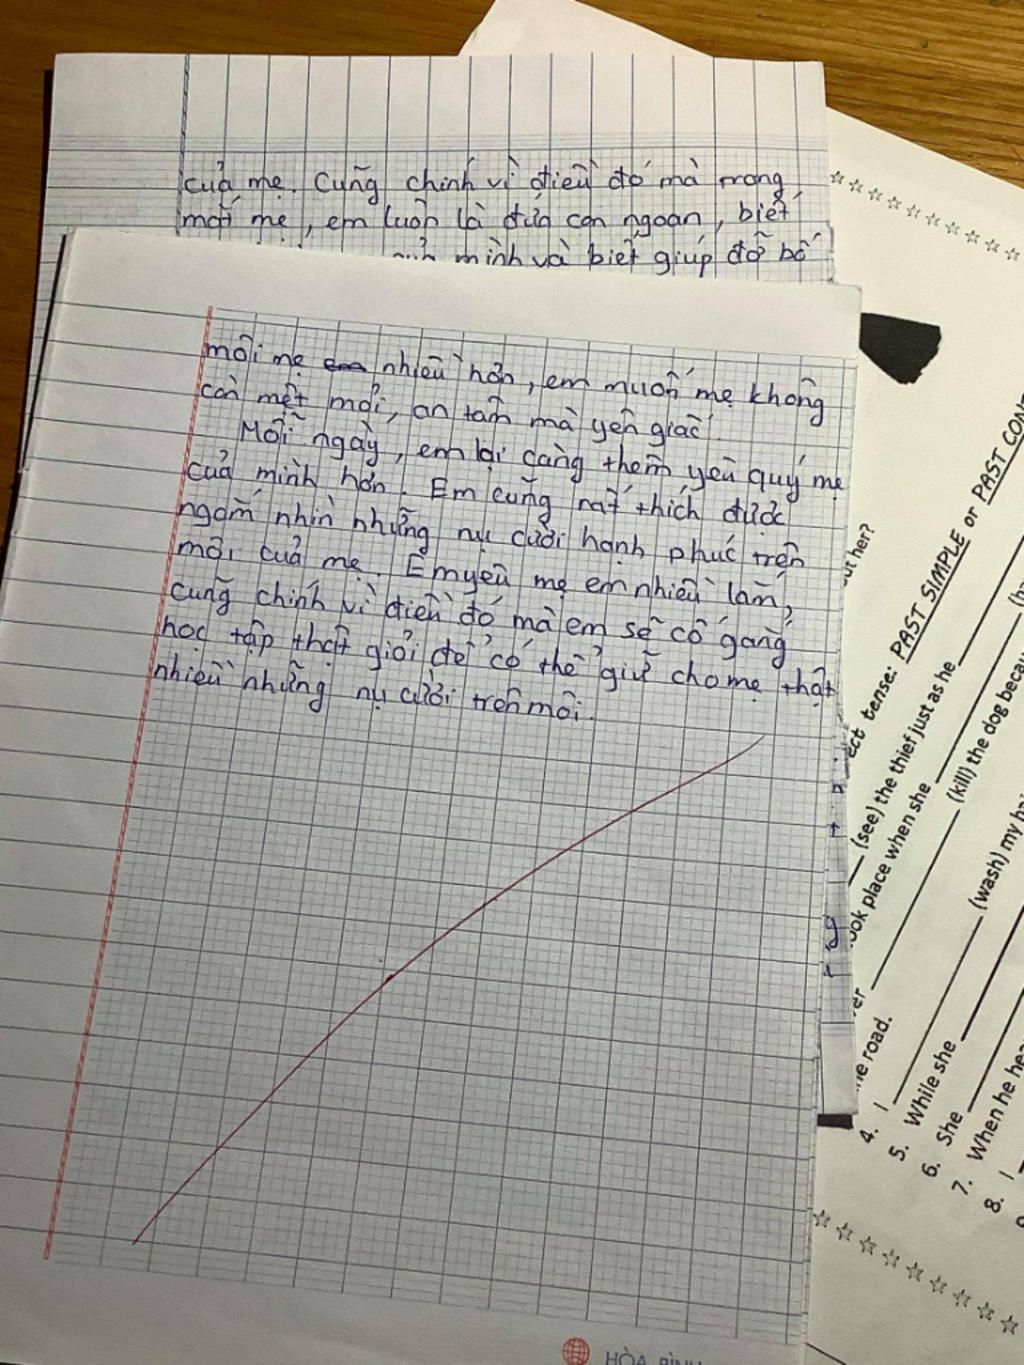 của mẹ. Cũng chính vì điều đó mà trong
mắt mẹ, em luôn là đứa con ngoan, biết
mình và biết giúp đỡ bố
môi mẹ em nhiều hơn, em muốn mẹ không
còn mệt mỏi, an tâm mà yên giấc.
Mỗi ngày, em lại càng thêm yêu quý mẹ
của mình hơn. Em cũng rất thích được
ngắm nhìn những nụ cười hạnh phúc trên
môi của mẹ. Em yêu mẹ em nhiều lắm,
cũng chính vì điều đó mà em sẽ cố gắng
học tập thật giỏi để có thể giữ cho mẹ thật
nhiều những nụ cười trên môi.
HÒA BÌNH
out her?
ect tense: PAST SIMPLE or PAST CONT
(see) the thief just as he
ook place when she
(kill) the dog becau
er
he road.
4. I (wash) my ha
5. While she
6. She
7. When he hea
8. I